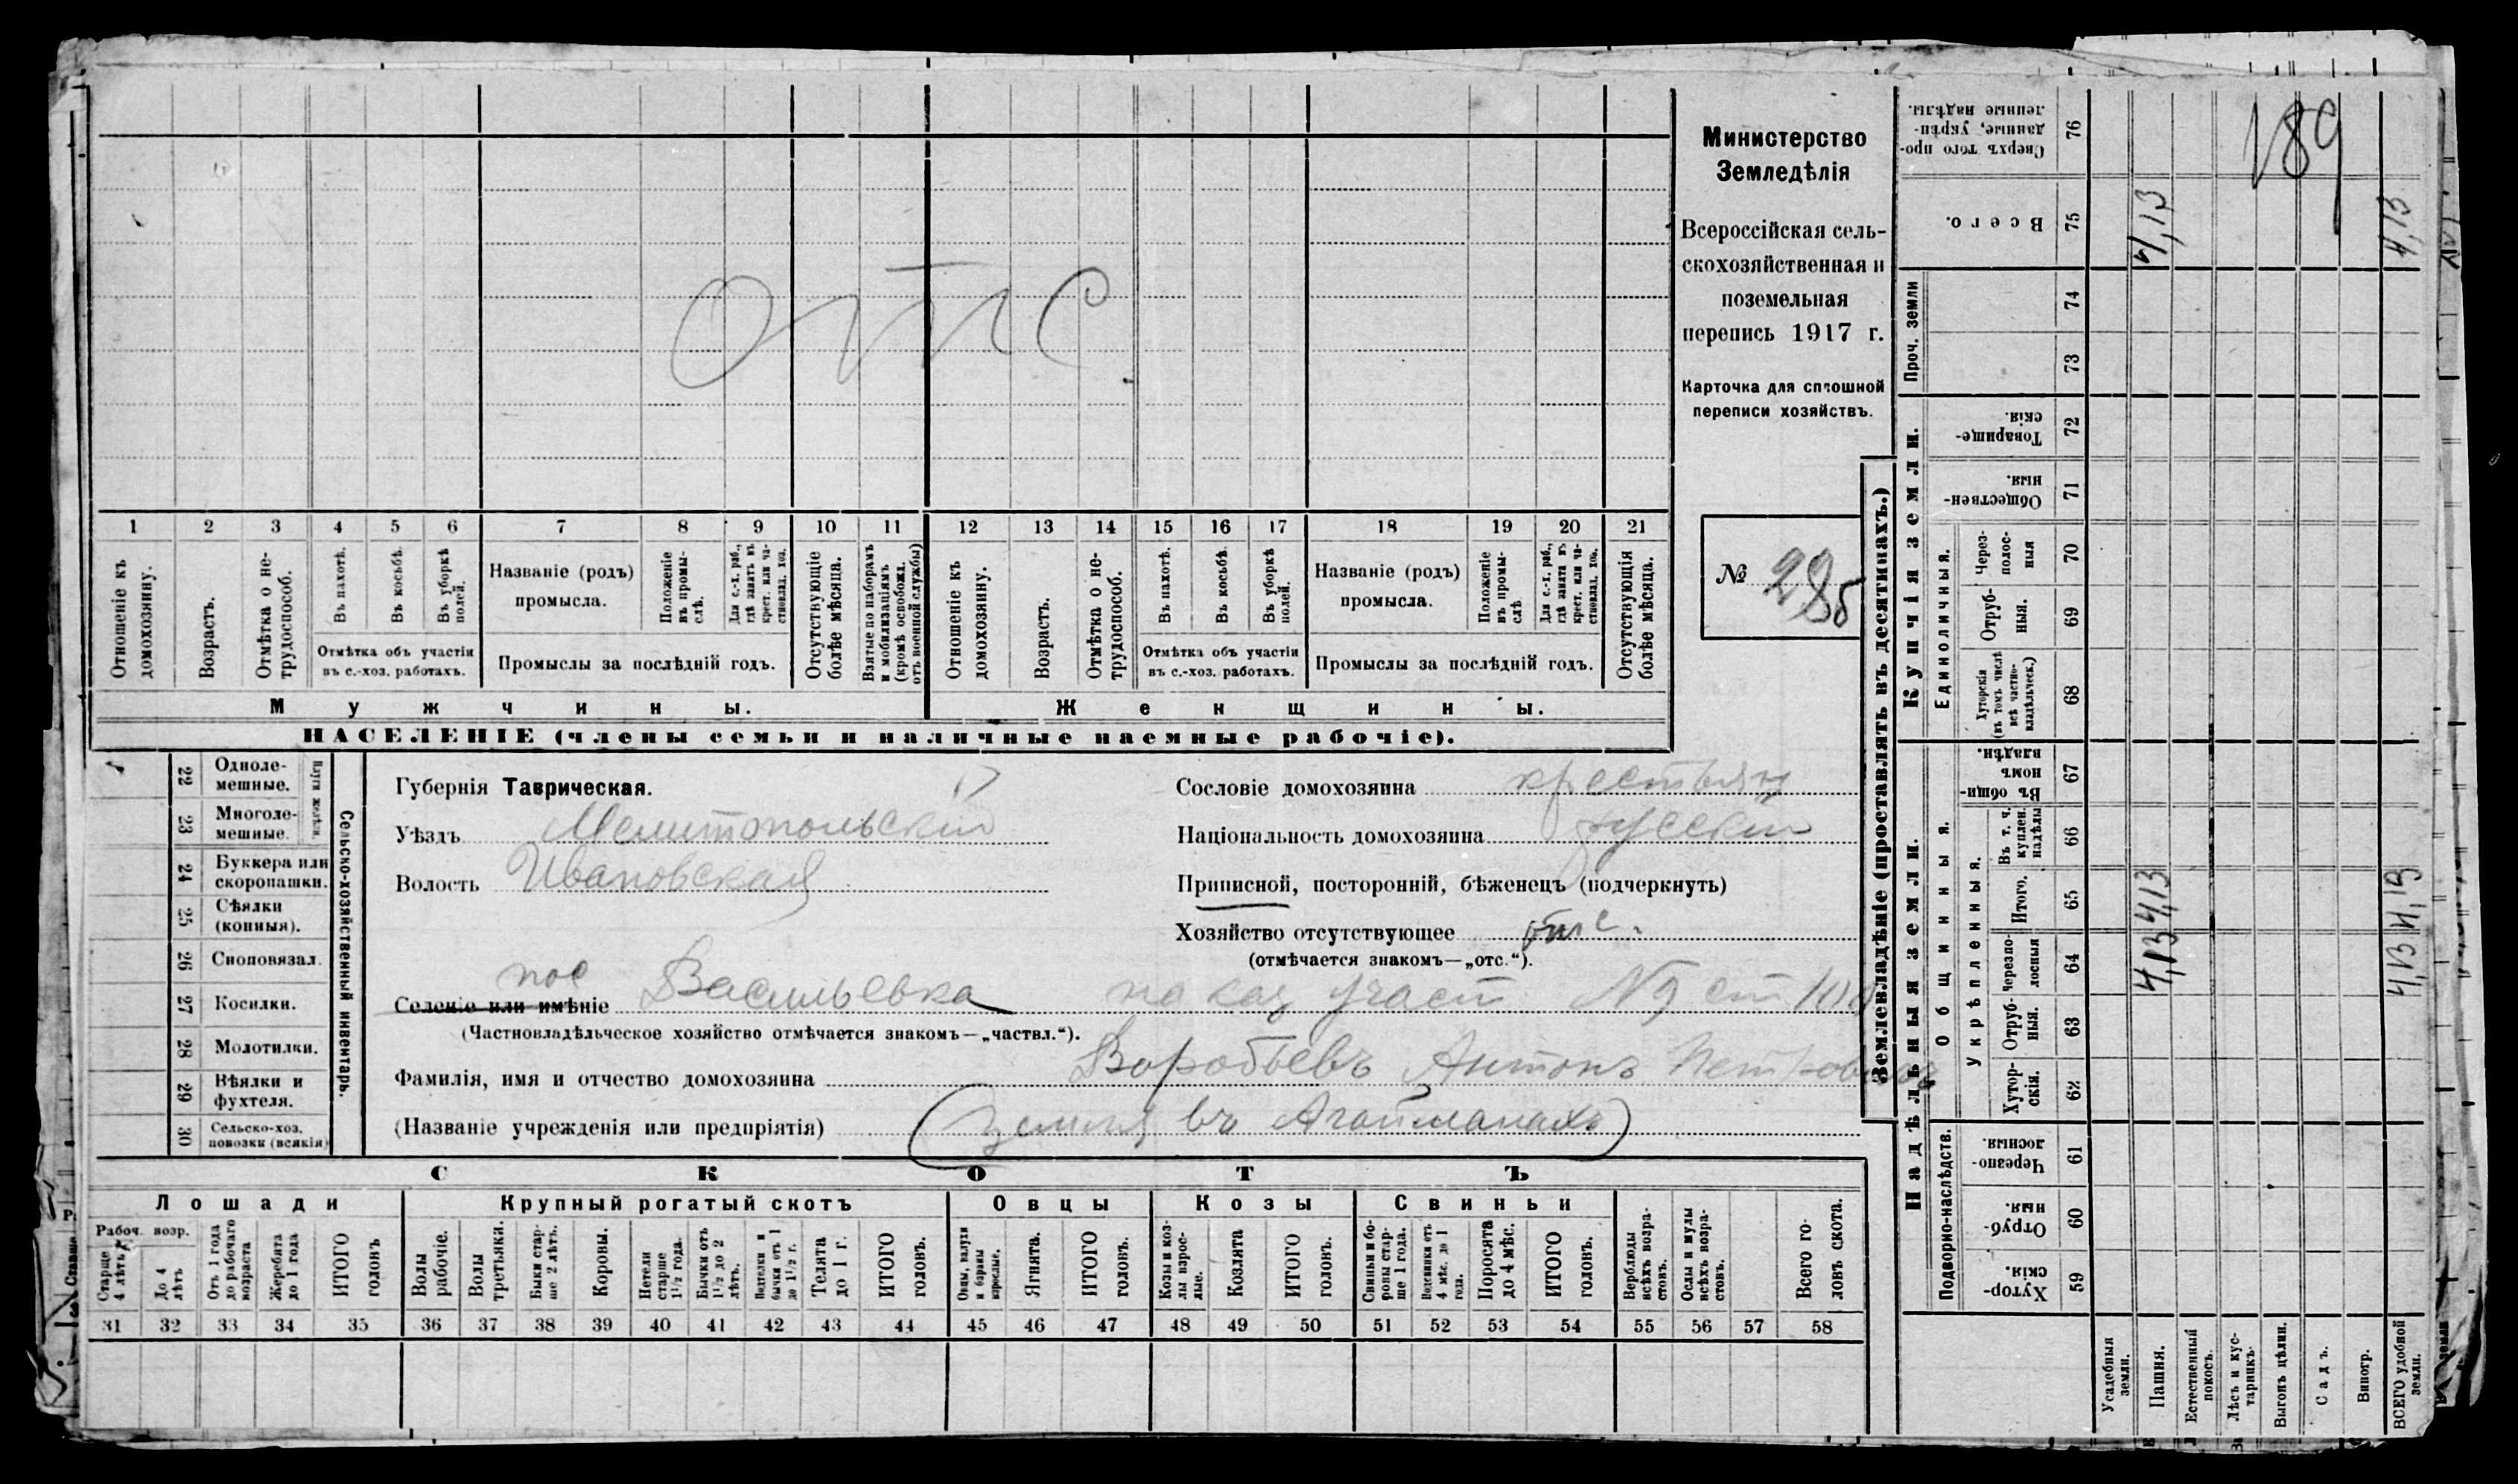 отс
1 2 3 4 5 6 7 8 9 10 11 12 13 14 15 16 17 18 19 20 21
Отношеніе къ домохозяину.
Возрастъ.
Отмѣтка о не-трудоспособ.
Въ пахотѣ.
Въ косьбѣ.
Въ уборкѣ полей.
Отмѣтка объ участіи
въ с.-хоз. работахъ.
Названіе (родъ)
промысла.
Положеніе въ промы-слѣ.
Для с.-х. раб., гдѣ занятъ въ крест. или ча-стновлад. хоз.
Промыслы за послѣдній годъ.
Отсутствующіе болѣе мѣсяца.
Взятые по наборамъ и мобилизаціямъ (кромѣ освобожд. отъ военной службы)
Отношеніе къ домохозяину.
Возрастъ.
Отмѣтка о не-трудоспособ.
Въ пахотѣ.
Въ косьбѣ.
Въ уборкѣ полей.
Отмѣтка объ участіи
въ с.-хоз. работахъ.
Названіе (родъ)
промысла.
Положеніе въ промы-слѣ
Для с.-х. раб., гдѣ занята въ крест. или ча-стновлад. хоз.
Промыслы за послѣдній годъ.
Отсутствующія болѣе мѣсяца.
Мужчины.
Женщины.
НАСЕЛЕНІЕ (члены семьи и наличные наемные рабочіе).
Министерство
Земледѣлія
Всероссійская сель-
скохозяйственная и
поземельная
перепись 1917 г.
Карточка для сплошной
переписи хозяйствъ.
№
22 Одноле-мешные.
23 Многоле-мешные.
Плуги желѣзн.
24 Буккера или скоропашки.
25 Сѣялки (конныя).
26 Сноповязал.
27 Косилки.
28 Молотилки.
29 Вѣялки и фухтеля.
30 Сельско-хоз. повозки (всякія)
Сельско-хозяйственный инвентарь.
Губернія Таврическая.
Уѣздъ Мелитопольскій
Волость Ивановская
Сословіе домохозяина крестьян
Національность домохозяина русскій
Приписной, посторонній, бѣженецъ (подчеркнуть)
Хозяйство отсутствующее отс.
(отмѣчается знакомъ—„отс.“).
пос
Селеніе или имѣніе Васильевка на каз участ № 9 ст
(Частновладѣльческое хозяйство отмѣчается знакомъ—„частвл.“).
Фамилія, имя и отчество домохозяина Воробьевъ Антонъ Петровичъ
(Названіе учрежденія или предпріятія) (земля въ Агайманахъ)
СКОТЪ
Лошади
Крупный рогатый скотъ
Овцы
Козы
Свиньи
Рабоч. возр.
Старше 4 лѣтъ
До 4 лѣтъ
Отъ 1 года до рабочаго возраста
Жеребята до 1 года
ИТОГО головъ
Волы рабочіе.
Волы третьяки.
Быки стар-ше 2 лѣтъ.
Коровы.
Нетели старше 1½ года.
Бычки отъ 1½ до 2 лѣтъ.
Подтелки и бычки отъ 1 до 1½ г.
Телята до 1 г.
ИТОГО головъ.
Овцы, валухи и бараны взрослые.
Ягнята.
ИТОГО головъ.
Козы и коз-лы взрос-лые.
Козлята
ИТОГО головъ.
Свиньи и бо-ровы стар-ше 1 года.
Подсвинки отъ 4 мѣс. до 1 года.
Поросята до 4 мѣс.
ИТОГО головъ.
Верблюды всѣхъ возра-стовъ.
Ослы и мулы всѣхъ возра-стовъ.
Всего го-ловъ скота.
31 32 33 34 35 36 37 38 39 40 41 42 43 44 45 46 47 48 49 50 51 52 53 54 55 56 57 58
Землевладѣніе (проставлять въ десятинахъ.)
189
Сверхъ того про-данные, укрѣп-ленные надѣлы. 76
Всего. 75 4,13 4,13
Проч. земли
74
73
Купчія земли.
Товарище-скія. 72
Обществен-ныя. 71
Единоличныя.
Через-полос-ныя 70
Отруб-ныя. 69
Хуторскія (въ томъ числѣ всѣ частно-владѣльческ.) 68
Надѣльныя земли.
Общинныя.
Въ общин-номъ владѣн. 67
Укрѣпленныя.
Въ т. ч. куплен. надѣлы 66
Итого. 65 4,13 4,13
Черезпо-лосныя 64 4,13 4,13
Отруб-ныя. 63
Хутор-скія. 62
Подворно-наслѣдств.
Черезпо-лосныя. 61
Отруб-ныя. 60
Хутор-скія. 59
Усадебныя земли.
Пашня.
Естественный покосъ.
Лѣсъ и кус-тарникъ.
Выгонъ цѣлин.
Садъ.
Виногр.
ВСЕГО удобной земли.